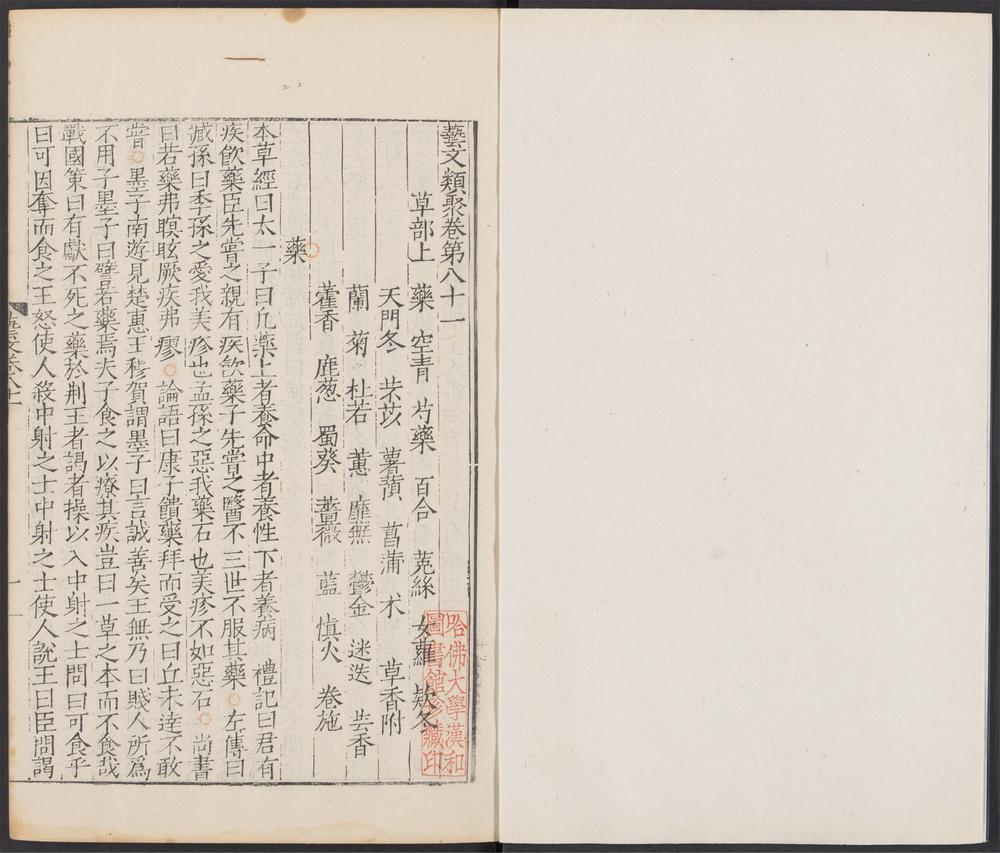 藝文類聚卷第八十一
草部上 藥 空青 芍藥 百合 菟絲 女蘿 欵冬
天門冬 芣苡 薯蕷 菖蒲 术 草香附
蘭 菊 杜若 蕙 蘼蕪 鬱金 迷迭 芸香
藿香 鹿葱 蜀葵 薔薇 藍 慎火 卷施
藥
本草經曰太一子曰凡藥上者養命中者養性下者養病 禮記曰君有
疾飲藥臣先嘗之親有疾飲藥子先嘗之醫不三世不服其藥○左傳曰
臧孫曰季孫之愛我美疹也孟孫之惡我藥石也美疹不如惡石○尚書
曰若藥弗瞑眩厥疾弗瘳○論語曰康子饋藥拜而受之曰丘未達不敢
嘗○墨子南遊見楚惠王穆賀謂墨子曰言誠善矣王無乃曰賤人所爲
不用子墨子曰譬若藥焉夫子食之以療其疾豈曰一草之本而不食哉
戰國策曰有獻不死之藥於荆王者謁者操以入中射之士問曰可食乎
曰可因奪而食之王怒使人殺中射之士中射之士使人說王曰臣問謁
藝文卷八十一
一
哈佛大學漢和
圖書館珍藏印